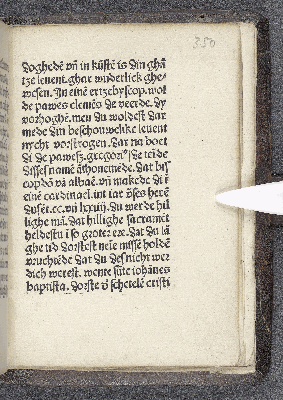 350
doghedē vñ in kūstē is din ghā
tze leuent. ghar wūderlick ghe-
wesen. Jn einē ertzebyscop. wol
de pawes clemēs de veerde. dy
vorhoghē. men du woldest dar
mede din beschouwelike leuent
nycht vorstrogen. Dar na doet
di de pawesz gregori⁹ de teīde
disses namē
copdō vā albaē. vñ makede di t
einē cardinael. int iar
dusēt. cc. vñ lxxiiij. Du werde hil
lighe mā. Dat hillighe sacramēt
heldestu ī so groter ere. Dat du lā
ghe tid dorstest nene misse holdē
vruchtēde dat du des nicht wer
dich werest. wente sūte iohānes
baptista. dorste